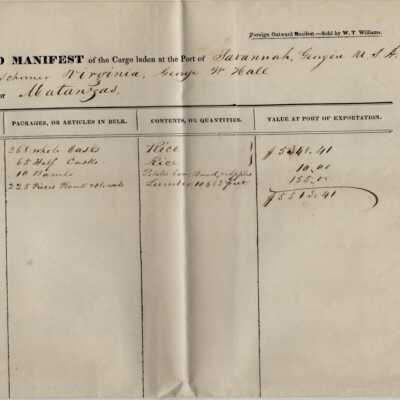 Foreign Outward Manifest.—Sold by W. T. Williams.
D MANIFEST of the Cargo laden at the Port of Savannah, Georgia U.S.A.
Schooner Virginia, George W Hall
or Matanzas.
PACKAGES, OR ARTICLES IN BULK. CONTENTS, OR QUANTITIES. VALUE AT PORT OF EXPORTATION.
268 whole Casks Rice
65 Half Casks Rice $5348.41
10 10.00
225 Lumber 10,663 feet 155.00
$5513.41